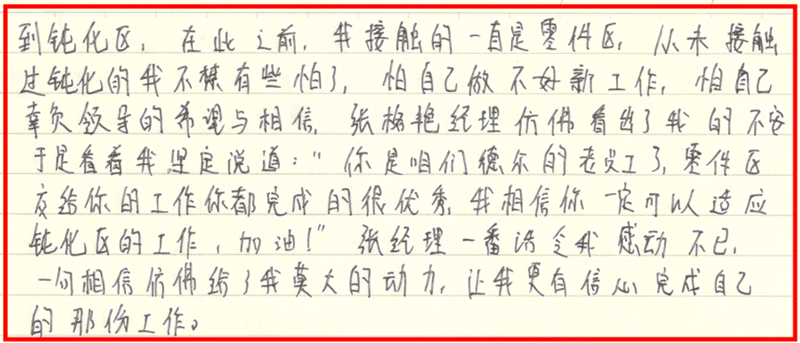 到钝化区，在此之前，我接触的一直是零件区，从未接触
过钝化的我不禁有些怕了，怕自己做不好新工作，怕自己
辜负领导的希望与相信，张格艳经理仿佛看出了我的不容
于是看着我坚定说道：“你是咱们德尔的老员工了，零件区
交给你的工作你都完成的很优秀，我相信你一定可以适应
钝化区的工作，加油！”张经理一番话令我感动不已，
一句相信仿佛给了我莫大的动力，让我更有信心完成自己
的那份工作。